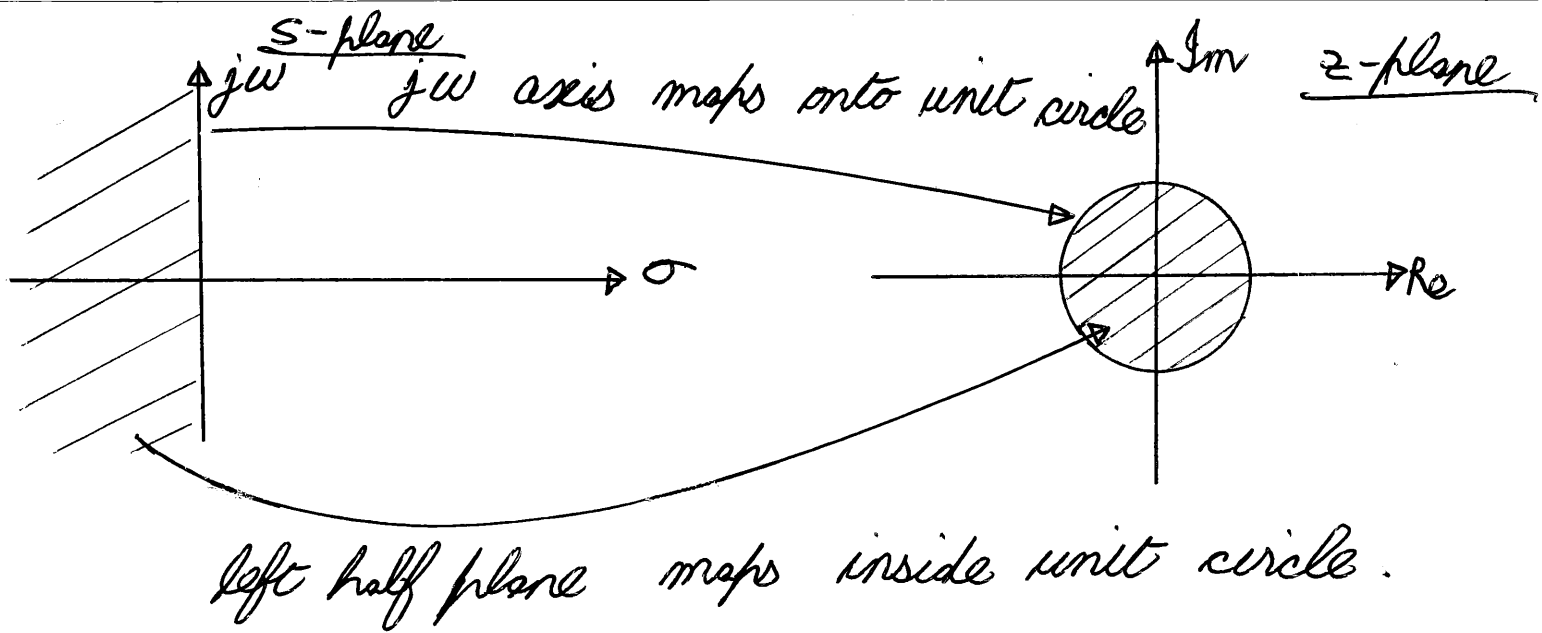 s-plane
jω
jω axis maps onto unit circle
Im
z-plane
σ
Re
left half plane maps inside unit circle.